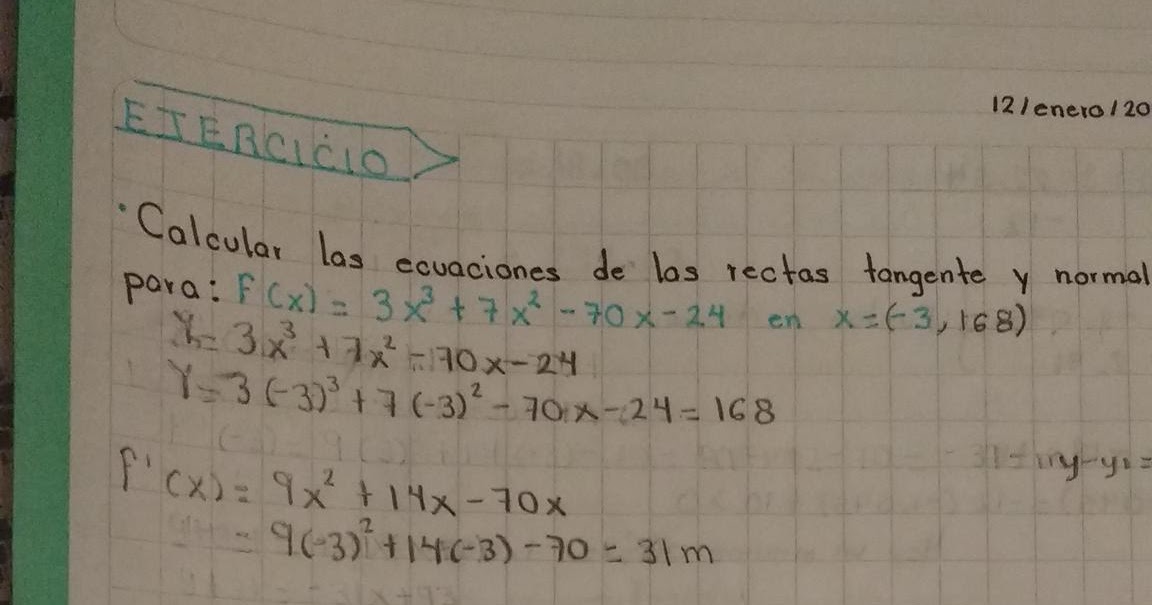 12/enero/20
EJERCICIO
• Calcular las ecuaciones de las rectas tangente y normal
para: F(x) = 3x³ + 7x² - 70x - 24 en x = (-3, 168)
Y = 3x³ + 7x² - 70x - 24
Y = 3(-3)³ + 7(-3)² - 70x - 24 = 168
f'(x) = 9x² + 14x - 70x
y - y₁ =
= 9(-3)² + 14(-3) - 70 = 31 m